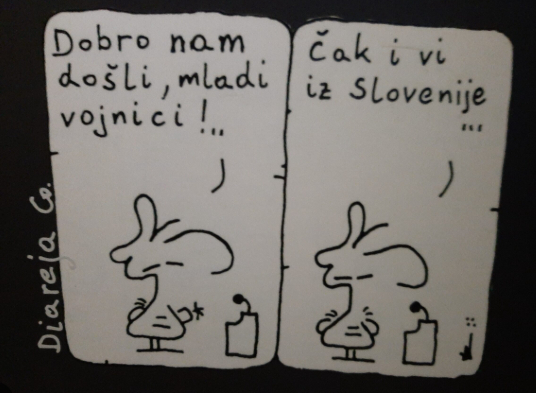 Dobro nam
došli, mladi
vojnici!...
Čak i vi
iz Slovenije
...
Diareja Co.